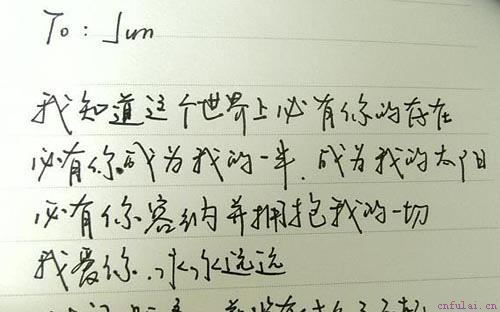 To: Jun
我知道这个世界上必有你的存在
必有你.成为我的一半.成为我的太阳
必有你容纳并拥抱我的一切
我爱你..永永远远
cnfulai.cn